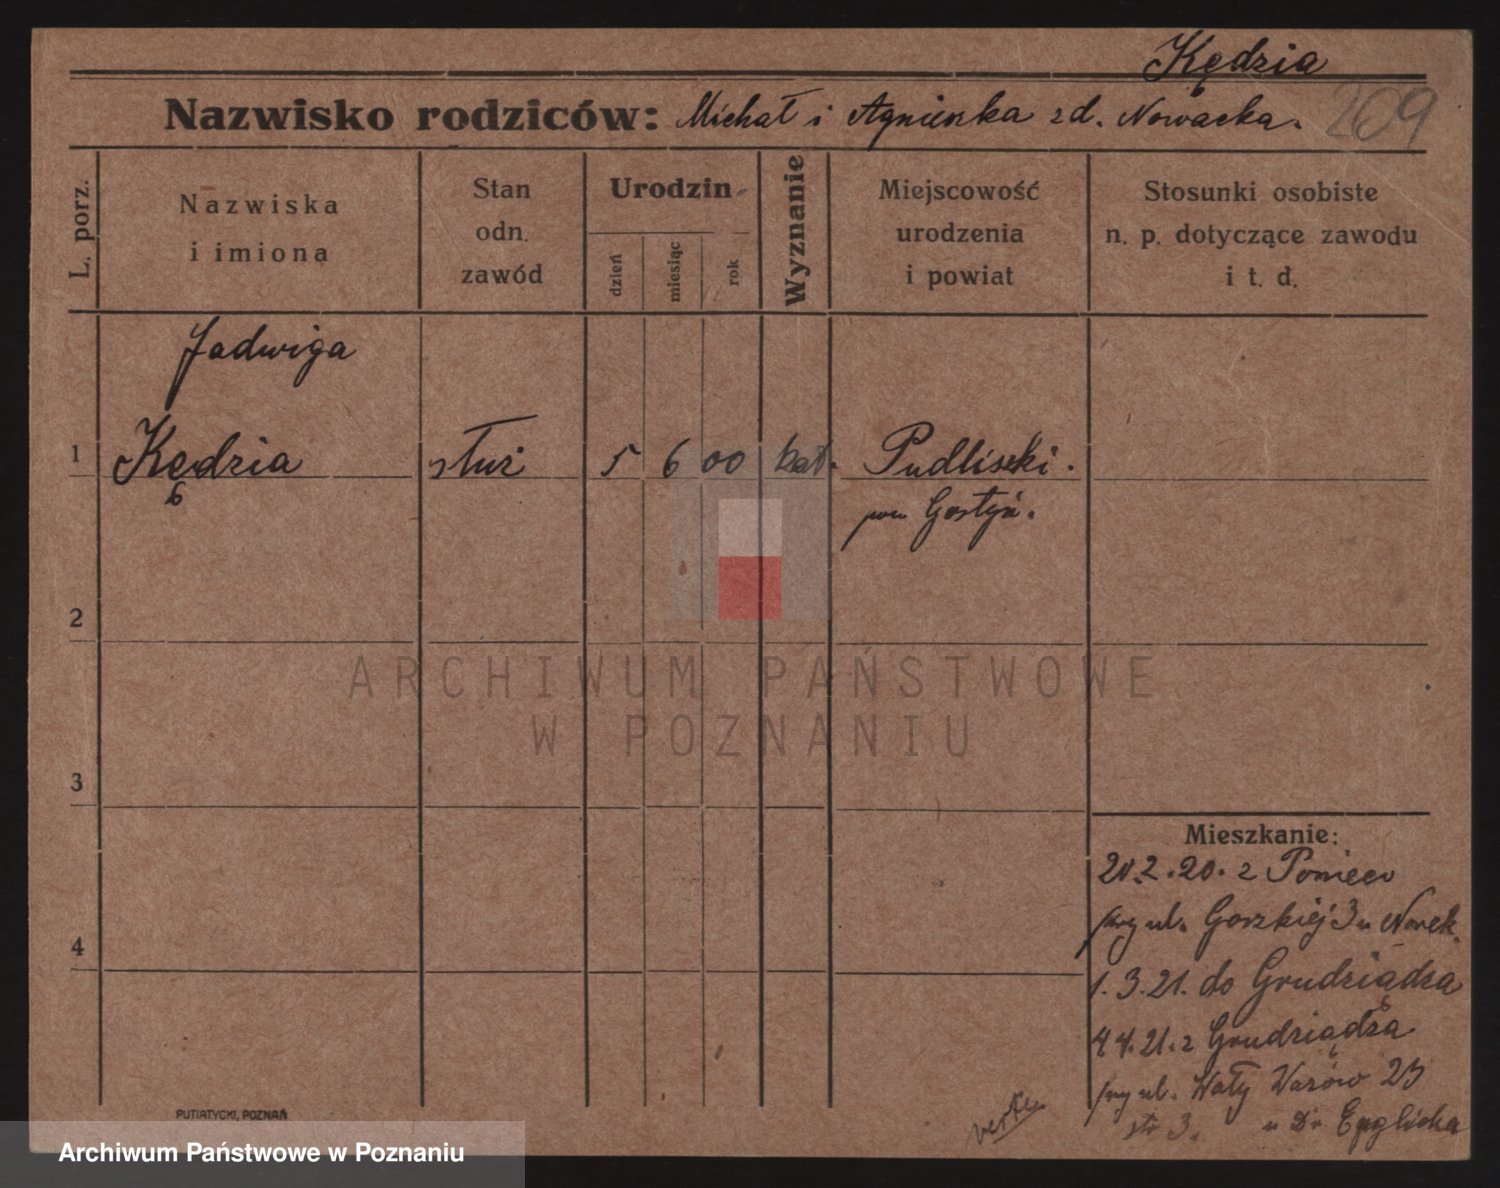 Kędzia
Nazwisko rodziców: Michał i Agnieszka zd. Nowacka. 209
L. porz.
Nazwiska
i imiona
Stan
odn.
zawód
Urodzin
dzień
miesiąc
rok
Wyznanie
Miejscowość
urodzenia
i powiat
Stosunki osobiste
n. p. dotyczące zawodu
i t. d.
Jadwiga
1 Kędzia służ 5 6 00 kat. Pudliszki.
pow Gostyń.
2
ARCHIWUM PAŃSTWOWE
W POZNANIU
3
Mieszkanie:
20.2.20. z Ponieca
przy ul. 3 u
4
1.3.21. do Grudziądza
4 4.21. z Grudziądza
przy ul. Wały Wazów 25
str 3. u Dr
PUTIATYCKI, POZNAŃ
Archiwum Państwowe w Poznaniu